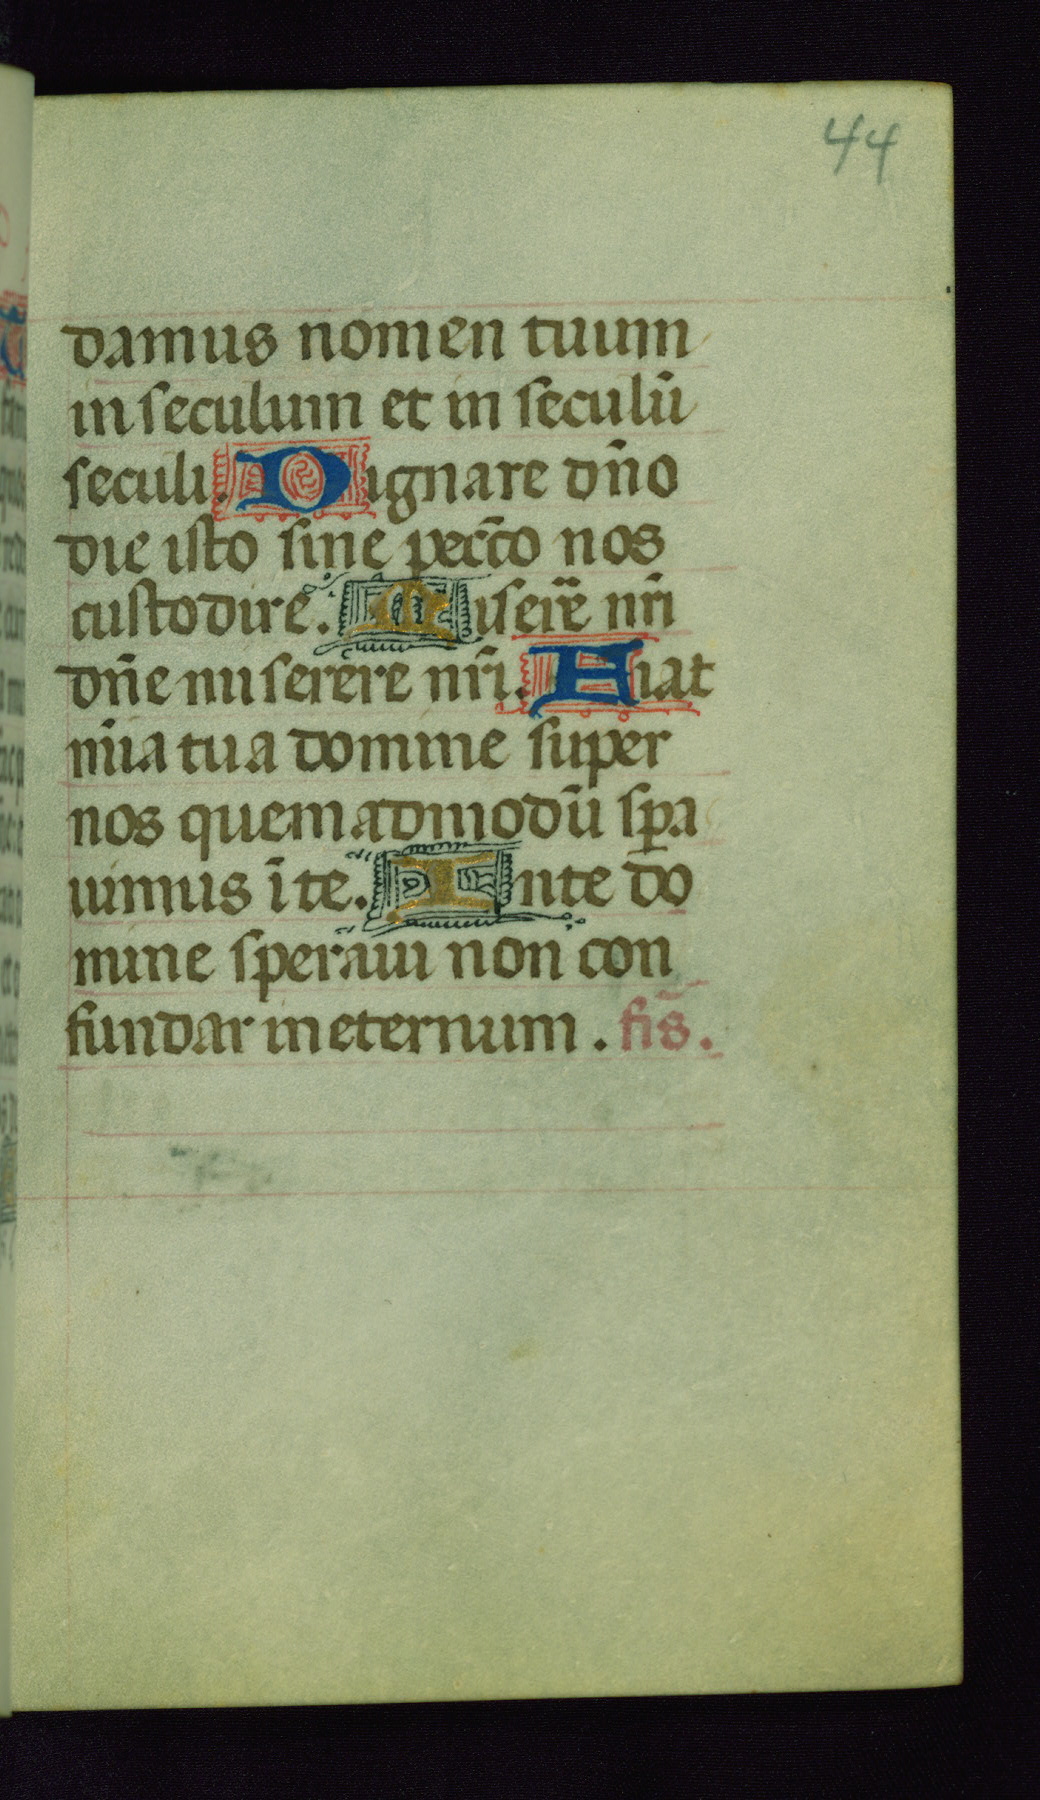 44
damus nomen tuum
in seculum et in seculū
seculi. Dignare dn̄o
die isto sine pecc̄o nos
custodire. Miserēre nr̄i
dn̄e miserere nr̄i. Fiat
mīa tua domine super
nos quemadmodū sꝑa
uimus ī te. Inte do
mine speraui non con
fundar in eternum. fis̄.